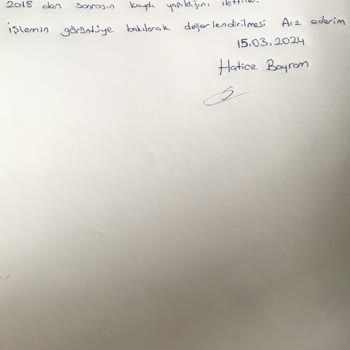 2018 den sonrasın kaydı yapıldığını iletti
işlemin görüntüye bakılarak değerlendirilmesi Arz ederim
15.03.2024
Hatice Bayram